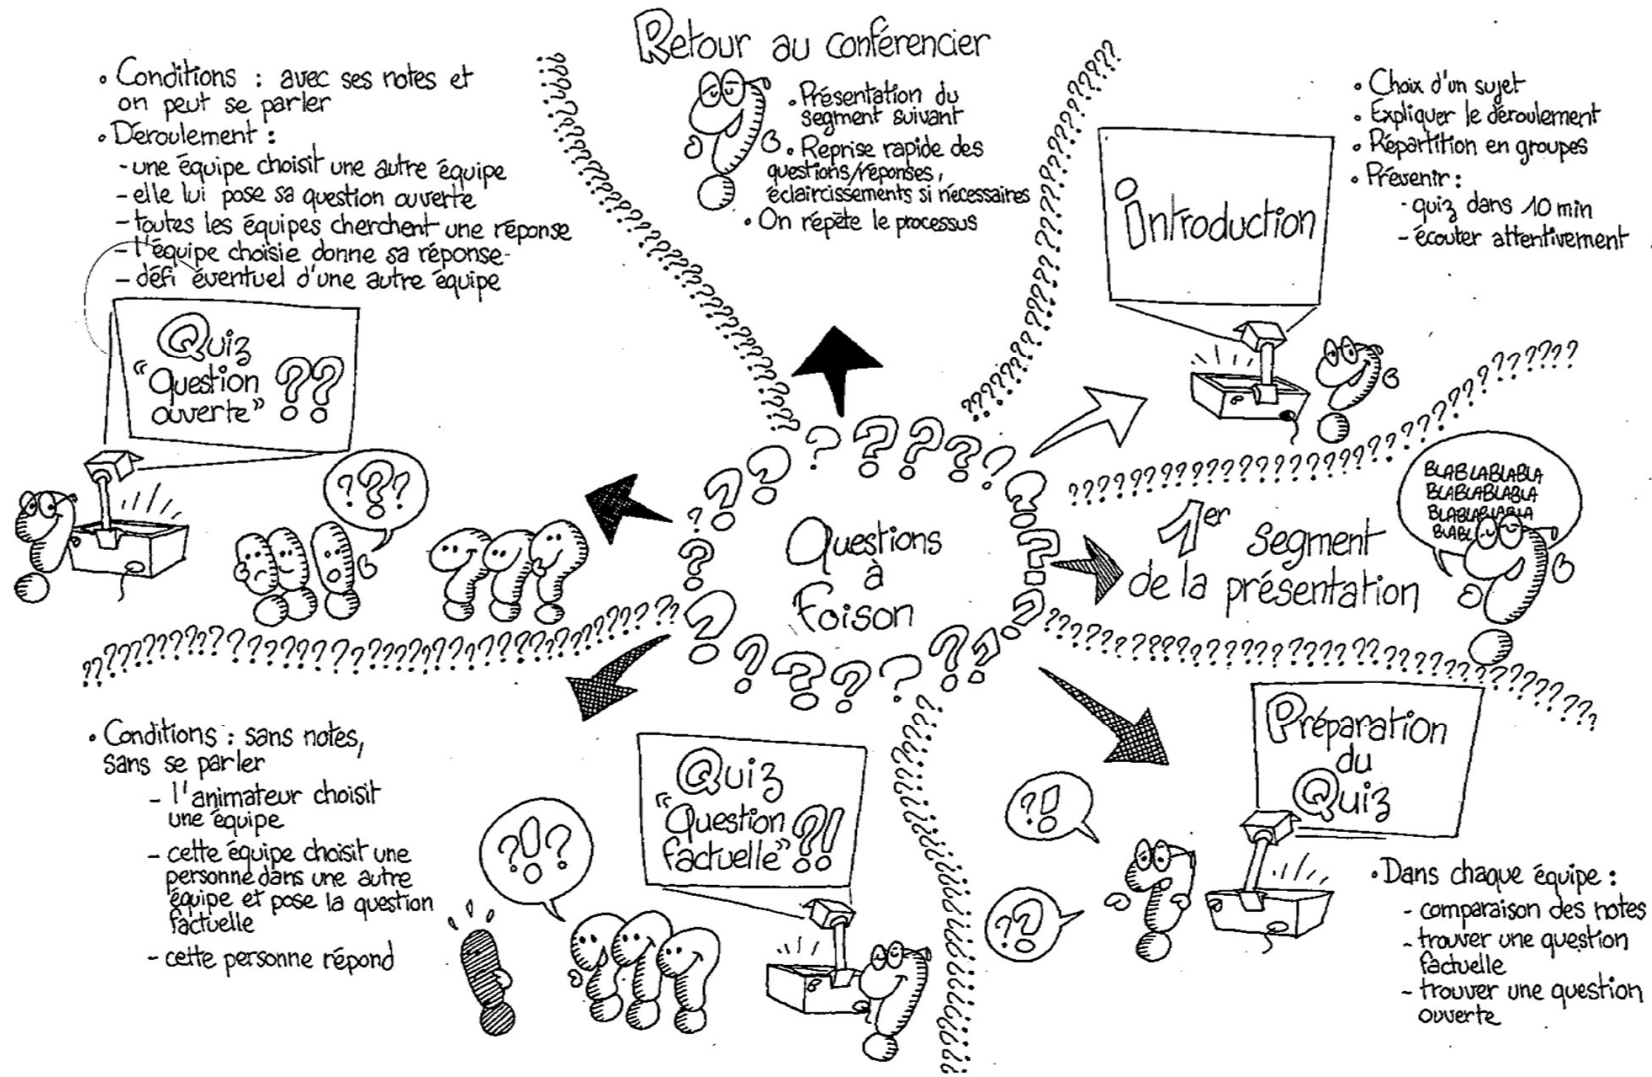 Questions
à
Foison
Introduction
• Choix d'un sujet
• Expliquer le déroulement
• Répartition en groupes
• Prévenir :
- quiz dans 10 min
- écouter attentivement
1er segment
de la présentation
BLABLABLABLA
BLABLABLABLA
BLABLABLABLA
BLABL
Préparation
du
Quiz
?!
??
• Dans chaque équipe :
- comparaison des notes
- trouver une question
factuelle
- trouver une question
ouverte
Quiz
"Question
factuelle" ?!
?!?
• Conditions : sans notes,
sans se parler
- l'animateur choisit
une équipe
- cette équipe choisit une
personne dans une autre
équipe et pose la question
factuelle
- cette personne répond
Quiz
"Question
ouverte" ??
???
• Conditions : avec ses notes et
on peut se parler
• Déroulement :
- une équipe choisit une autre équipe
- elle lui pose sa question ouverte
- toutes les équipes cherchent une réponse
- l'équipe choisie donne sa réponse
- défi éventuel d'une autre équipe
Retour au conférencier
• Présentation du
segment suivant
• Reprise rapide des
questions/réponses,
éclaircissements si nécessaires
• On répète le processus